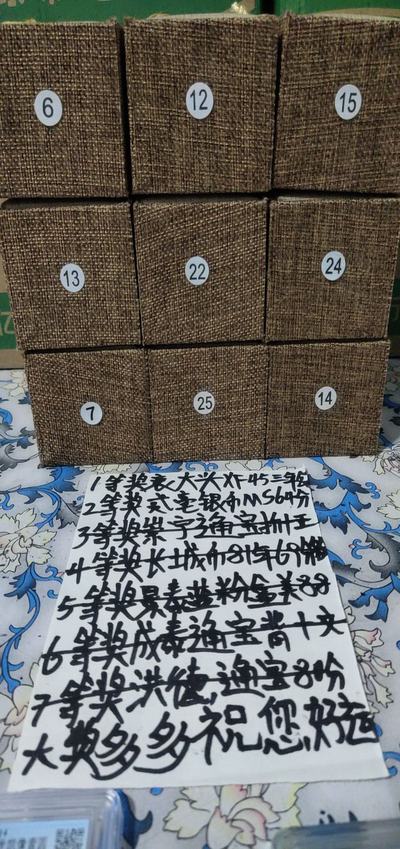 6 12 15
13 22 24
7 25 14
1等奖袁大头XF45三年
2等奖贰毫银币MS64分
3等奖崇宁通宝折十
4等奖长城币81年69
5等奖景泰蓝粉盒美88
6等奖咸泰通宝背十文
7等奖洪德通宝8份
大奖多多祝您好运